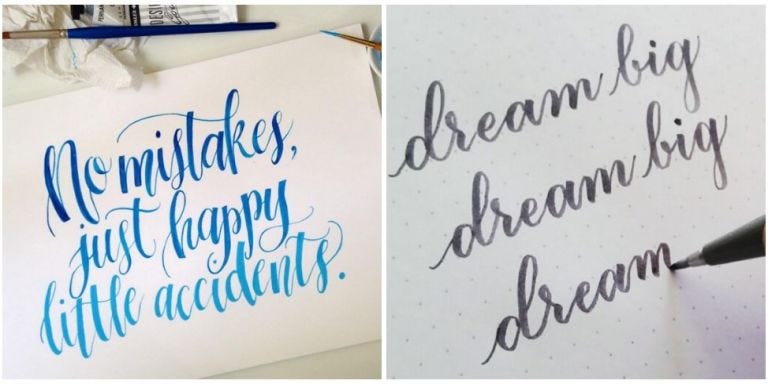 No mistakes,
just happy
little accidents.
dream big
dream big
dream